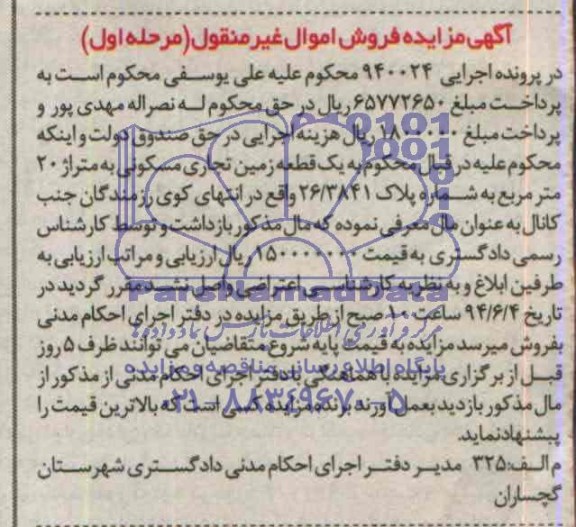 آگهی مزایده فروش اموال غیر منقول (مرحله اول)
در پرونده اجرایی ۹۴۰۰۲۴ محکوم علیه علی یوسفی محکوم است به
پرداخت مبلغ ۶۵۷۷۲۶۵۰ ریال در حق محکوم له نصراله مهدی پور و
پرداخت مبلغ ۱۸۰۰۰۰۰ ریال هزینه اجرایی در حق صندوق دولت و اینکه
محکوم علیه در قبال محکوم به یک قطعه زمین تجاری مسکونی به متراژ ۲۰
متر مربع به شماره پلاک ۲۶/۳۸۴۱ واقع در انتهای کوی رزمندگان جنب
کانال به عنوان مال معرفی نموده که مال مذکور بازداشت و توسط کارشناس
رسمی دادگستری به قیمت ۱۵۰۰۰۰۰۰۰ ریال ارزیابی و مراتب ارزیابی به
طرفین ابلاغ و به نظریه کارشناسی اعتراضی واصل نشد مقرر گردید در
تاریخ ۹۴/۶/۴ ساعت ۱۰ صبح از طریق مزایده در دفتر اجرای احکام مدنی
بفروش میرسد مزایده به قیمت پایه شروع متقاضیان می توانند ظرف ۵ روز
قبل از برگزاری مزایده با هماهنگی با دفتر اجرای احکام مدنی از مذکور از
مال مذکور بازدید بعمل آورند برنده مزایده کسی است که بالاترین قیمت را
پیشنهاد نماید.
م الف: ۳۲۵ مدیر دفتر اجرای احکام مدنی دادگستری شهرستان
گچساران
ParsNamadData
مرکز فرآوری اطلاعات پارس نماد داده ها
پایگاه اطلاع رسانی مناقصه و مزایده
۰۲۱-۸۸۳۴۹۶۷۰-۵